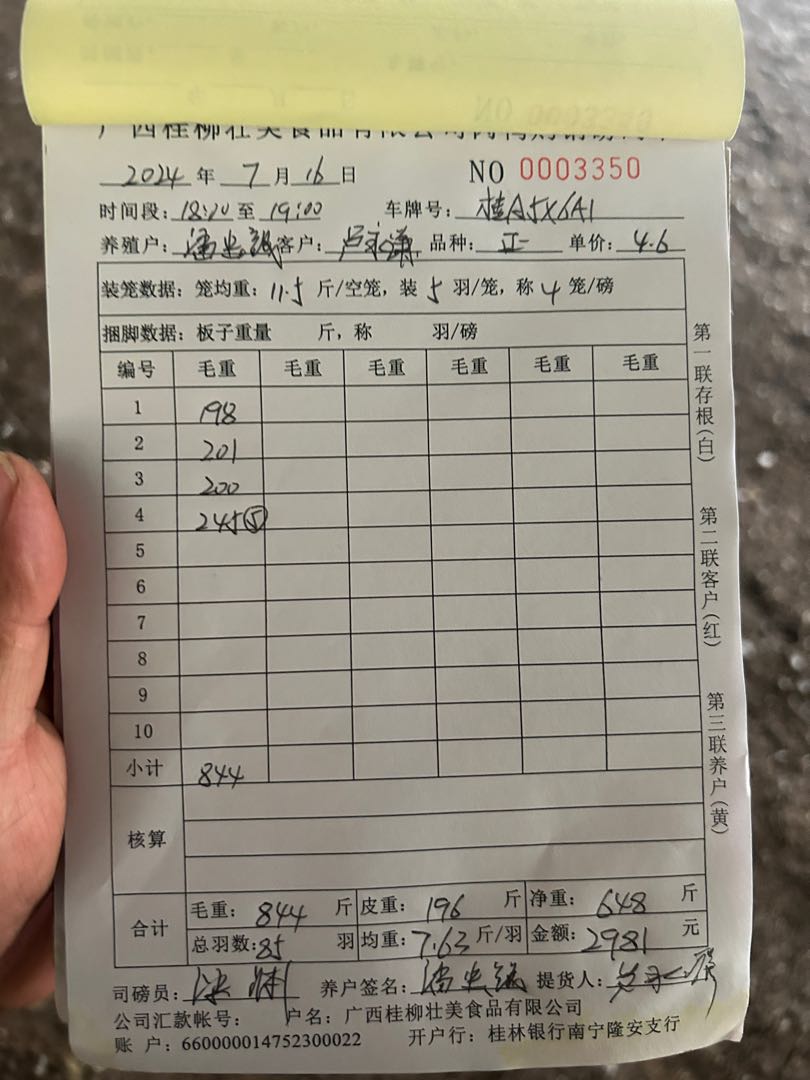 NO 0003350
广西桂柳壮美食品有限公司肉鸭购销磅码单
2024 年 7 月 16 日 NO 0003350
时间段: 18:20 至 19:00 车牌号: 桂A5X6A1
养殖户: 客户: 品种: 单价: 4.6
装笼数据: 笼均重: 11.5 斤/空笼, 装 5 羽/笼, 称 4 笼/磅
捆脚数据: 板子重量 斤, 称 羽/磅
编号 毛重 毛重 毛重 毛重 毛重 毛重
1 198
2 201
3 200
4 245⑤
5
6
7
8
9
10
小计 844
核算
合计 毛重: 844 斤 皮重: 196 斤 净重: 648 斤
总羽数: 85 羽 均重: 7.63 斤/羽 金额: 2981 元
司磅员: 养户签名: 提货人:
公司汇款帐号: 户名: 广西桂柳壮美食品有限公司
账 户: 660000014752300022 开户行: 桂林银行南宁隆安支行
第一联存根(白)
第二联客户(红)
第三联养户(黄)